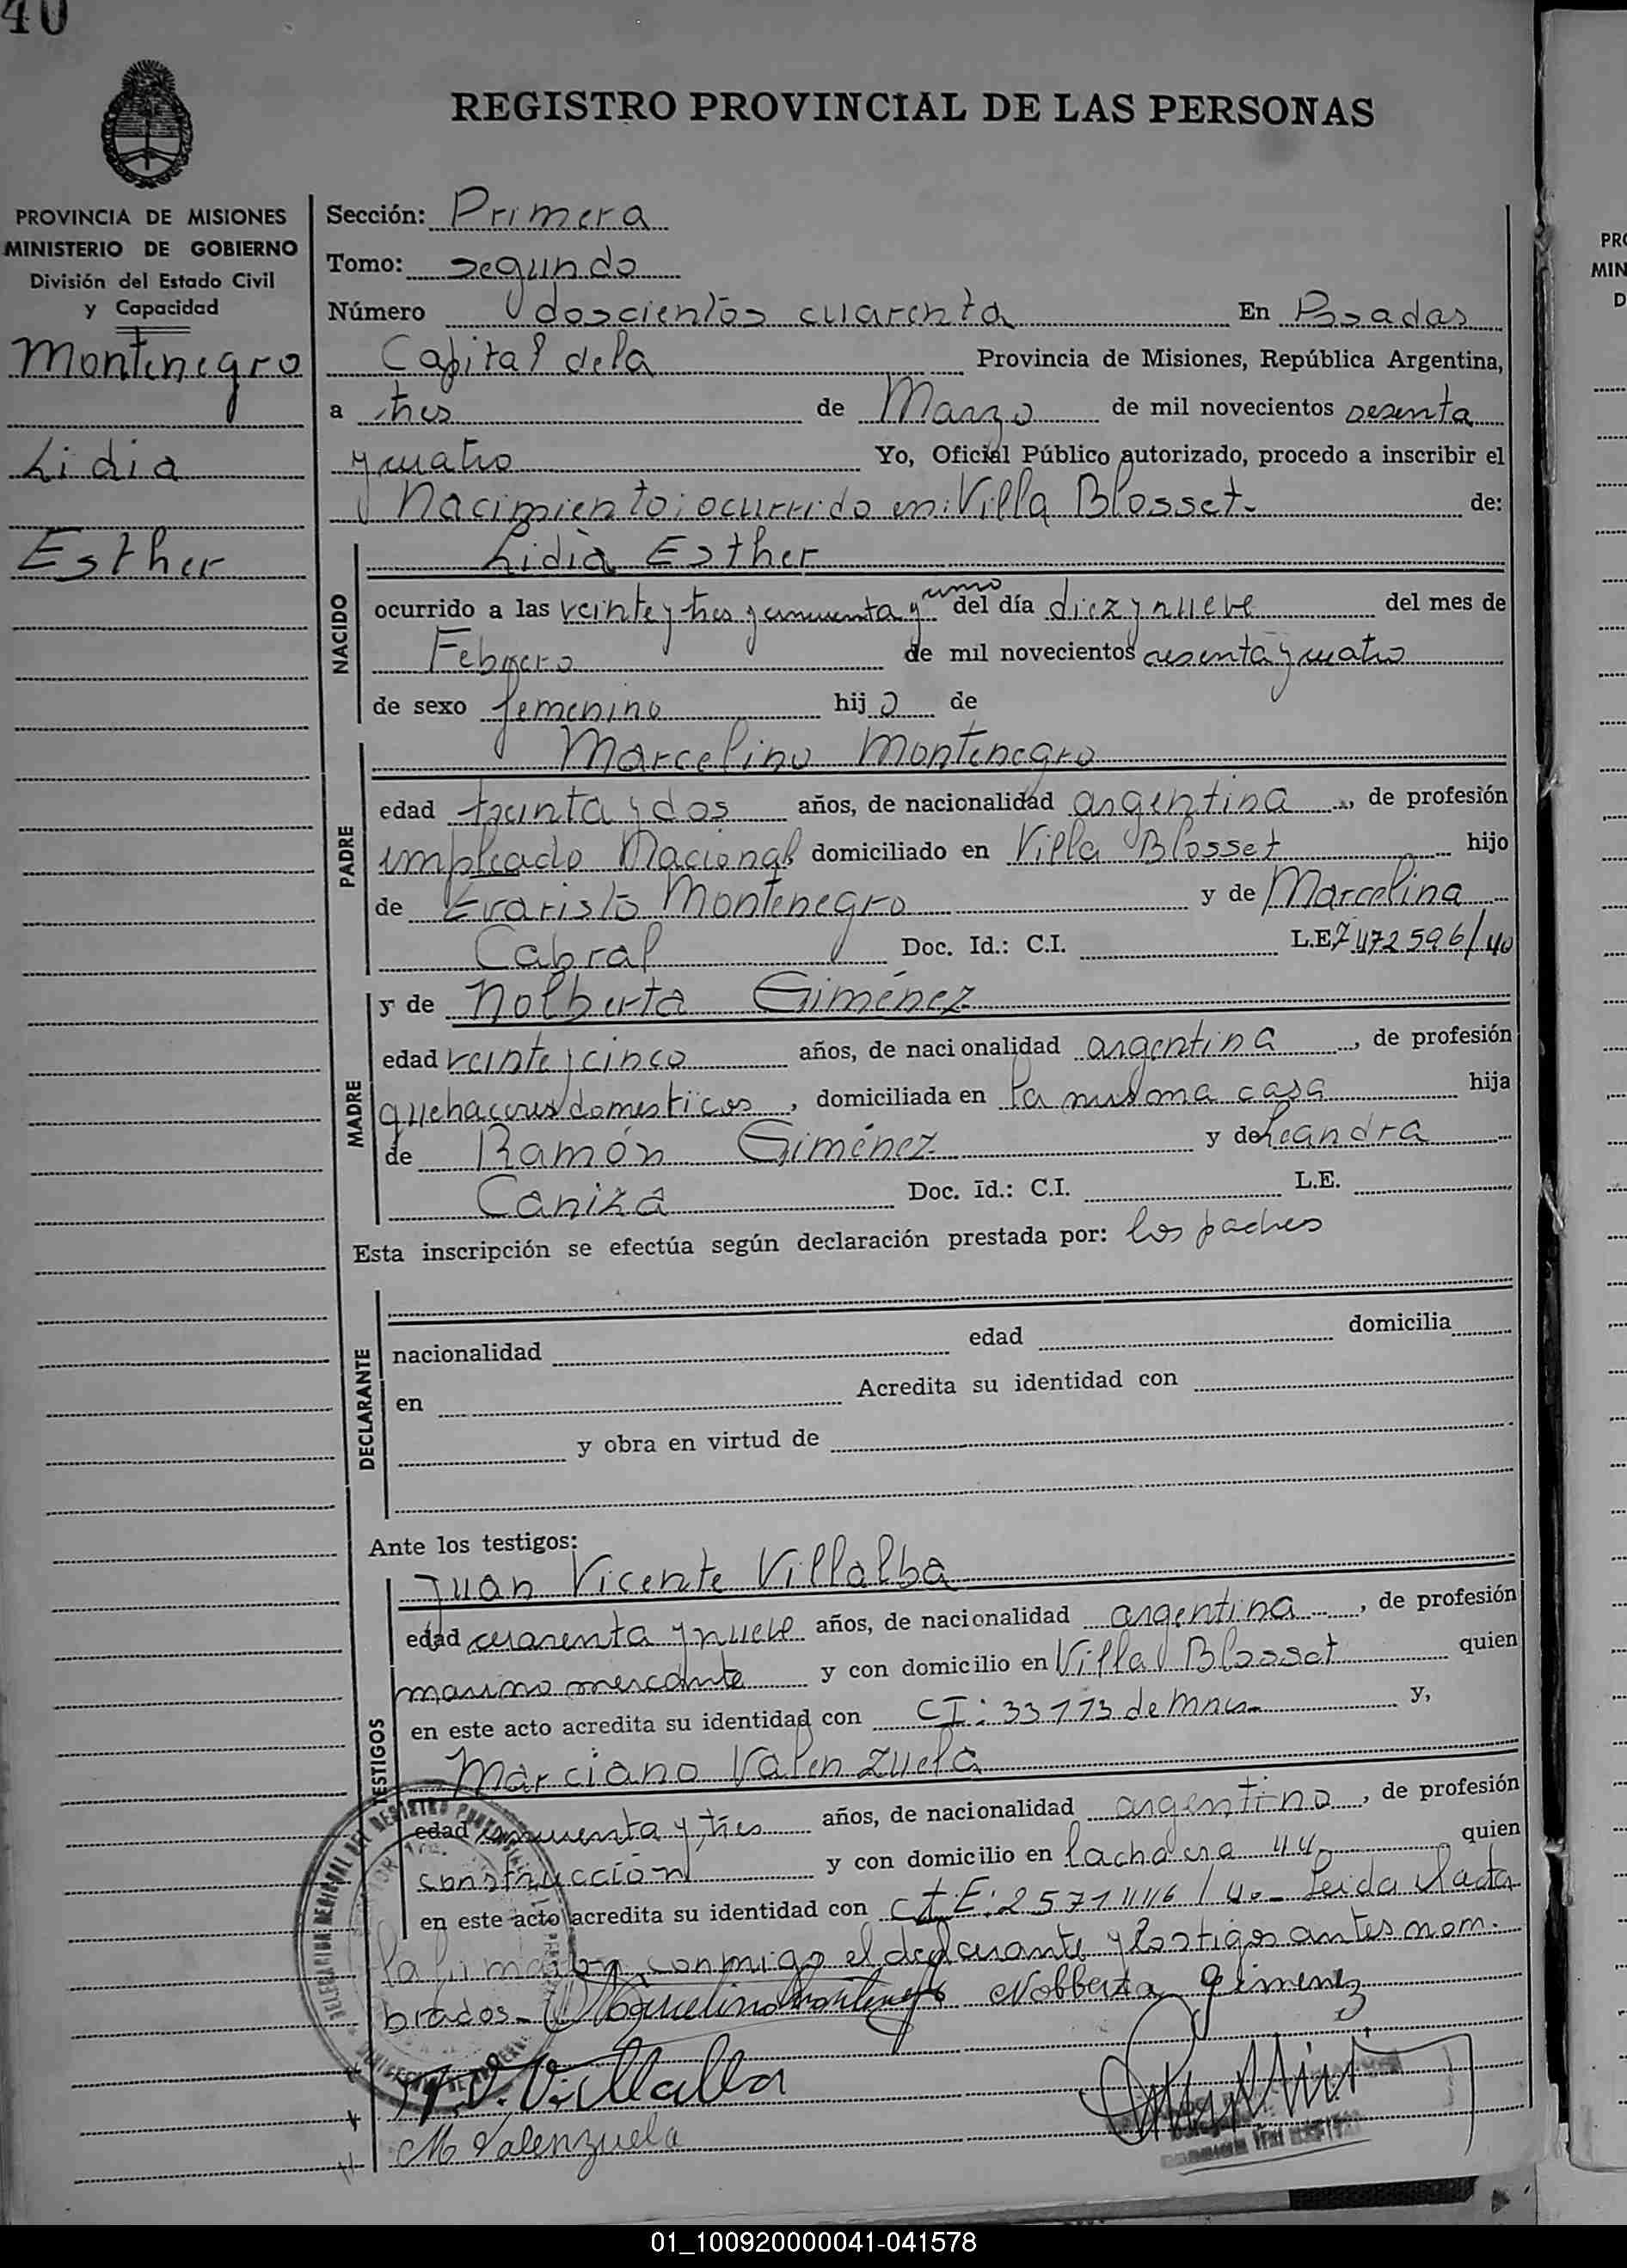 40
REGISTRO PROVINCIAL DE LAS PERSONAS
PROVINCIA DE MISIONES
MINISTERIO DE GOBIERNO
División del Estado Civil
y Capacidad
Montenegro
Lidia
Esther
Sección: Primera
Tomo: segundo
Número doscientos cuarenta En Posadas
Capital de la Provincia de Misiones, República Argentina,
a tres de Marzo de mil novecientos sesenta
y cuatro Yo, Oficial Público autorizado, procedo a inscribir el
Nacimiento: ocurrido en: Villa Blosset- de:
NACIDO
Lidia Esther
ocurrido a las veinte y tres y cincuenta y uno del día diez y nueve del mes de
Febrero de mil novecientos sesenta y cuatro
de sexo femenino hij a de
PADRE
Marcelino Montenegro
edad treinta y dos años, de nacionalidad argentina, de profesión
empleado Nacional domiciliado en Villa Blosset hijo
de Evaristo Montenegro y de Marcelina
Cabral Doc. Id.: C.I. L.E. 7472596/40
MADRE
y de Nolberta Giménez
edad veinte y cinco años, de nacionalidad argentina, de profesión
quehaceres domesticos, domiciliada en la misma casa hija
de Ramón Giménez y de Leandra
Canizá Doc. Id.: C.I. L.E.
Esta inscripción se efectúa según declaración prestada por: los padres
DECLARANTE
nacionalidad edad domicilia
en Acredita su identidad con
y obra en virtud de
Ante los testigos:
TESTIGOS
Juan Vicente Villalba
edad cuarenta y nueve años, de nacionalidad argentina, de profesión
marino mercante y con domicilio en Villa Blosset quien
en este acto acredita su identidad con CI: 33113 de Mnes- y,
Marciano Valenzuela
edad cincuenta y tres años, de nacionalidad argentina, de profesión
construcción y con domicilio en Lachacra 44 quien
en este acto acredita su identidad con L.E: 2571446/40- Leida el acta
la firmaba conmigo el declarante y testigos antes nom-
brados- Marcelino Montenegro Nolberta Gimenez
J.V. Villalba
M Valenzuela
01_100920000041-041578